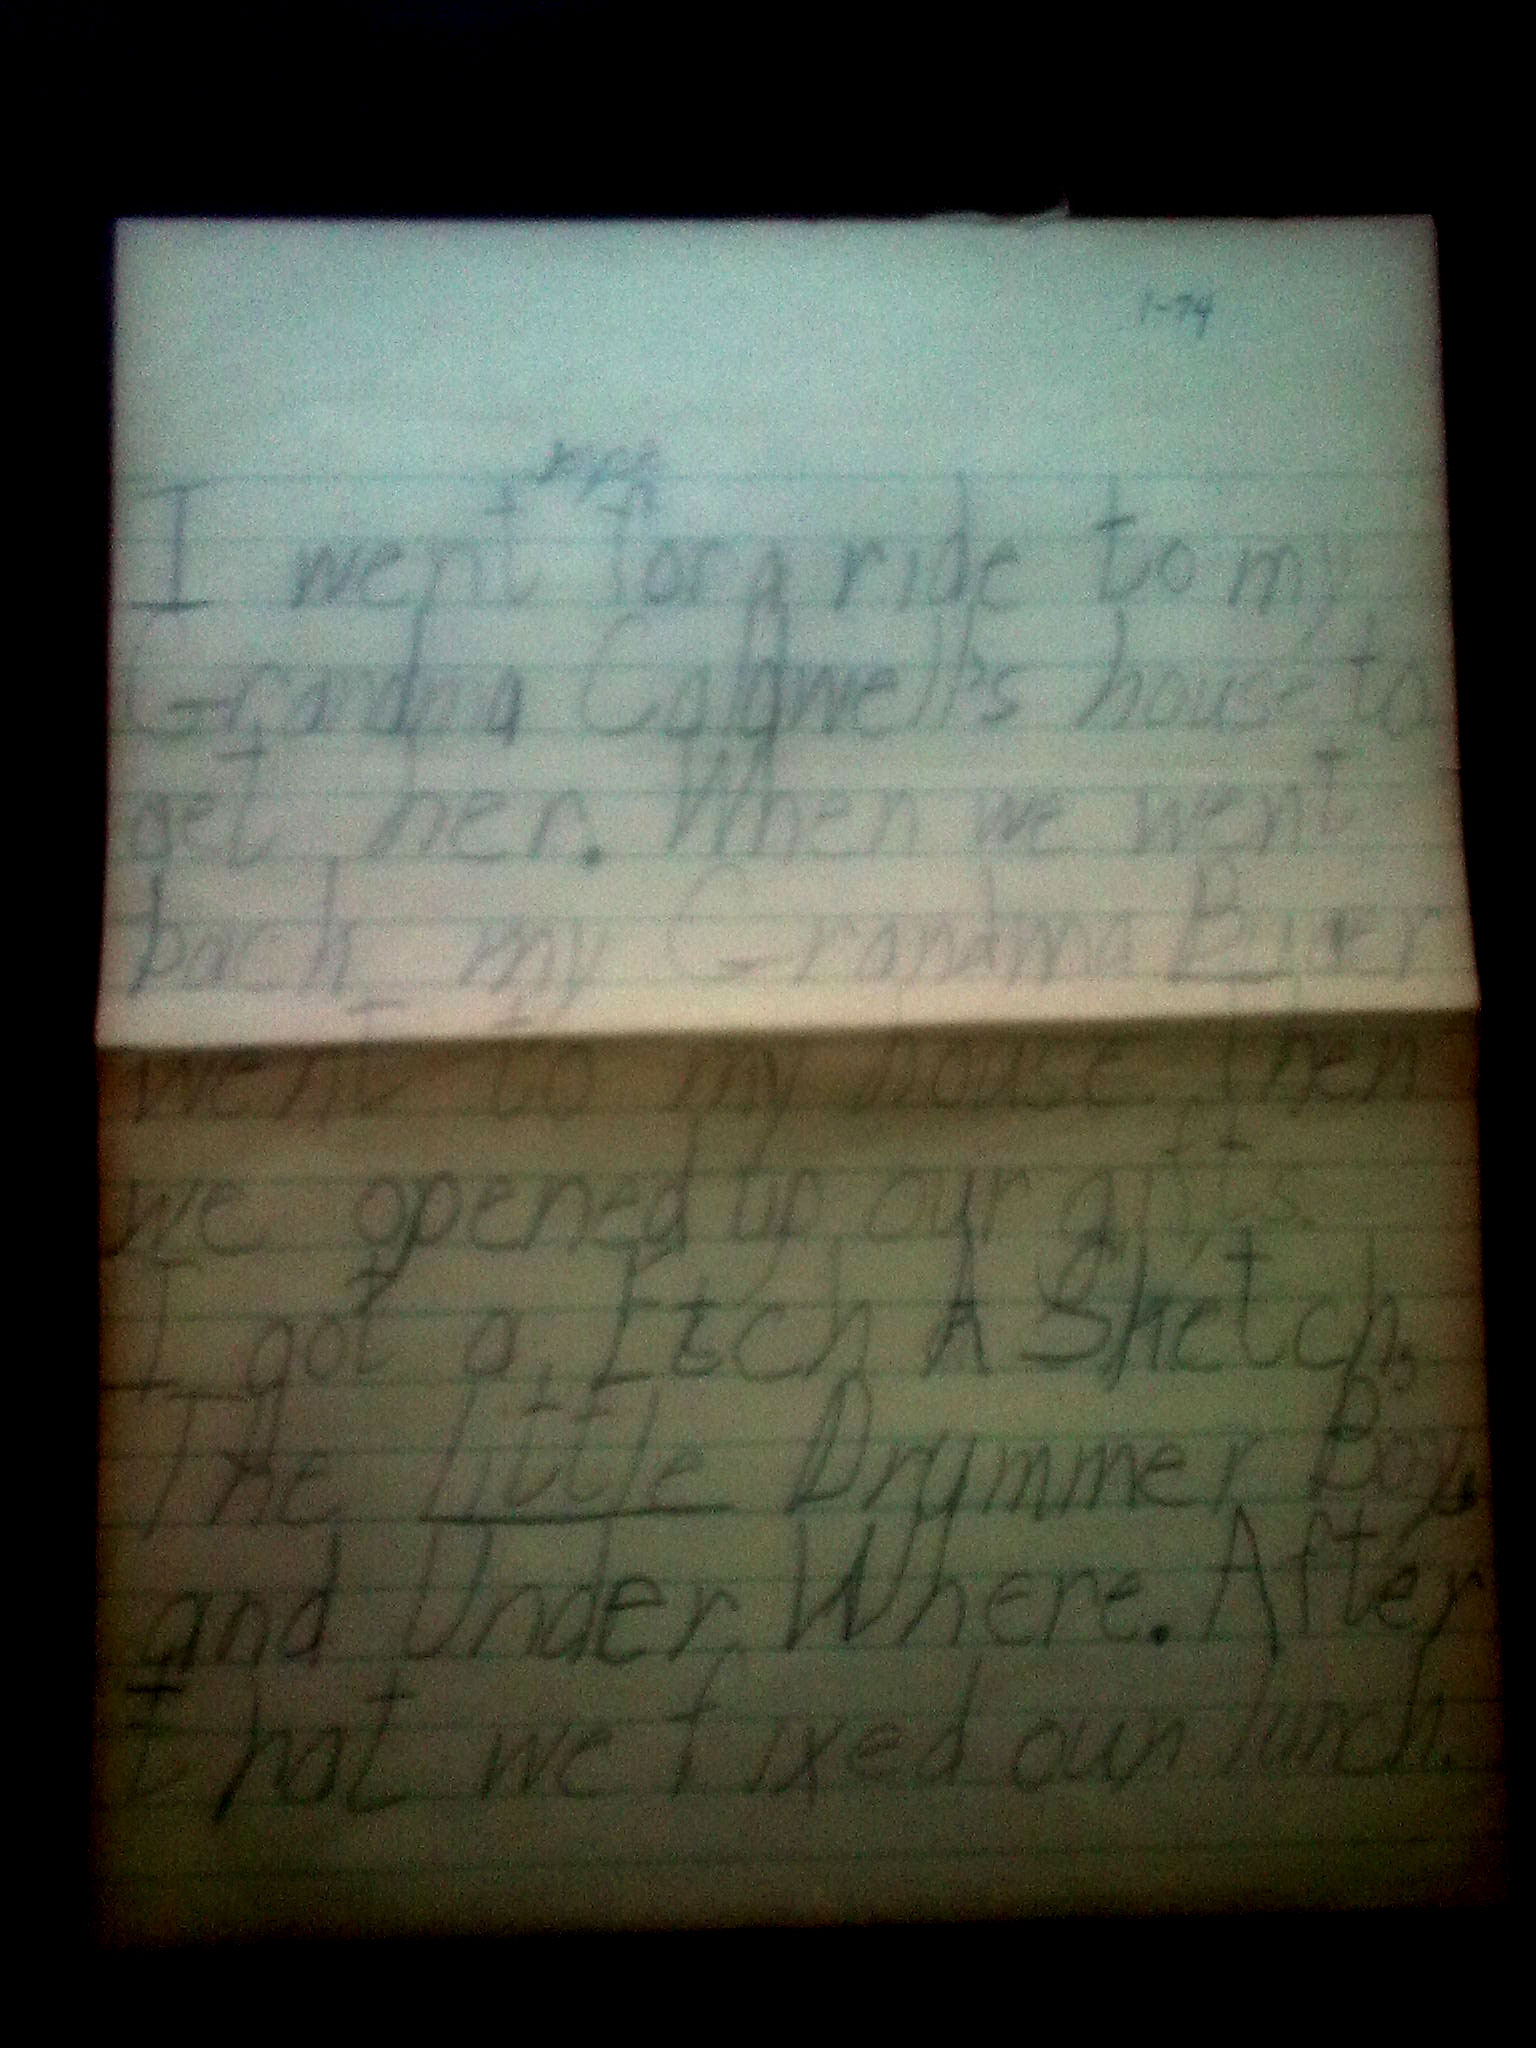 1-74
I went for a ride to my
Grandma Caldwell's house to
get her. When we went
back my Grandma
went to my house. Then
we opened up our gifts.
I got a, Etch A Sketch,
The Little Drummer Boy,
and Under Where. After
that we fixed our lunch.